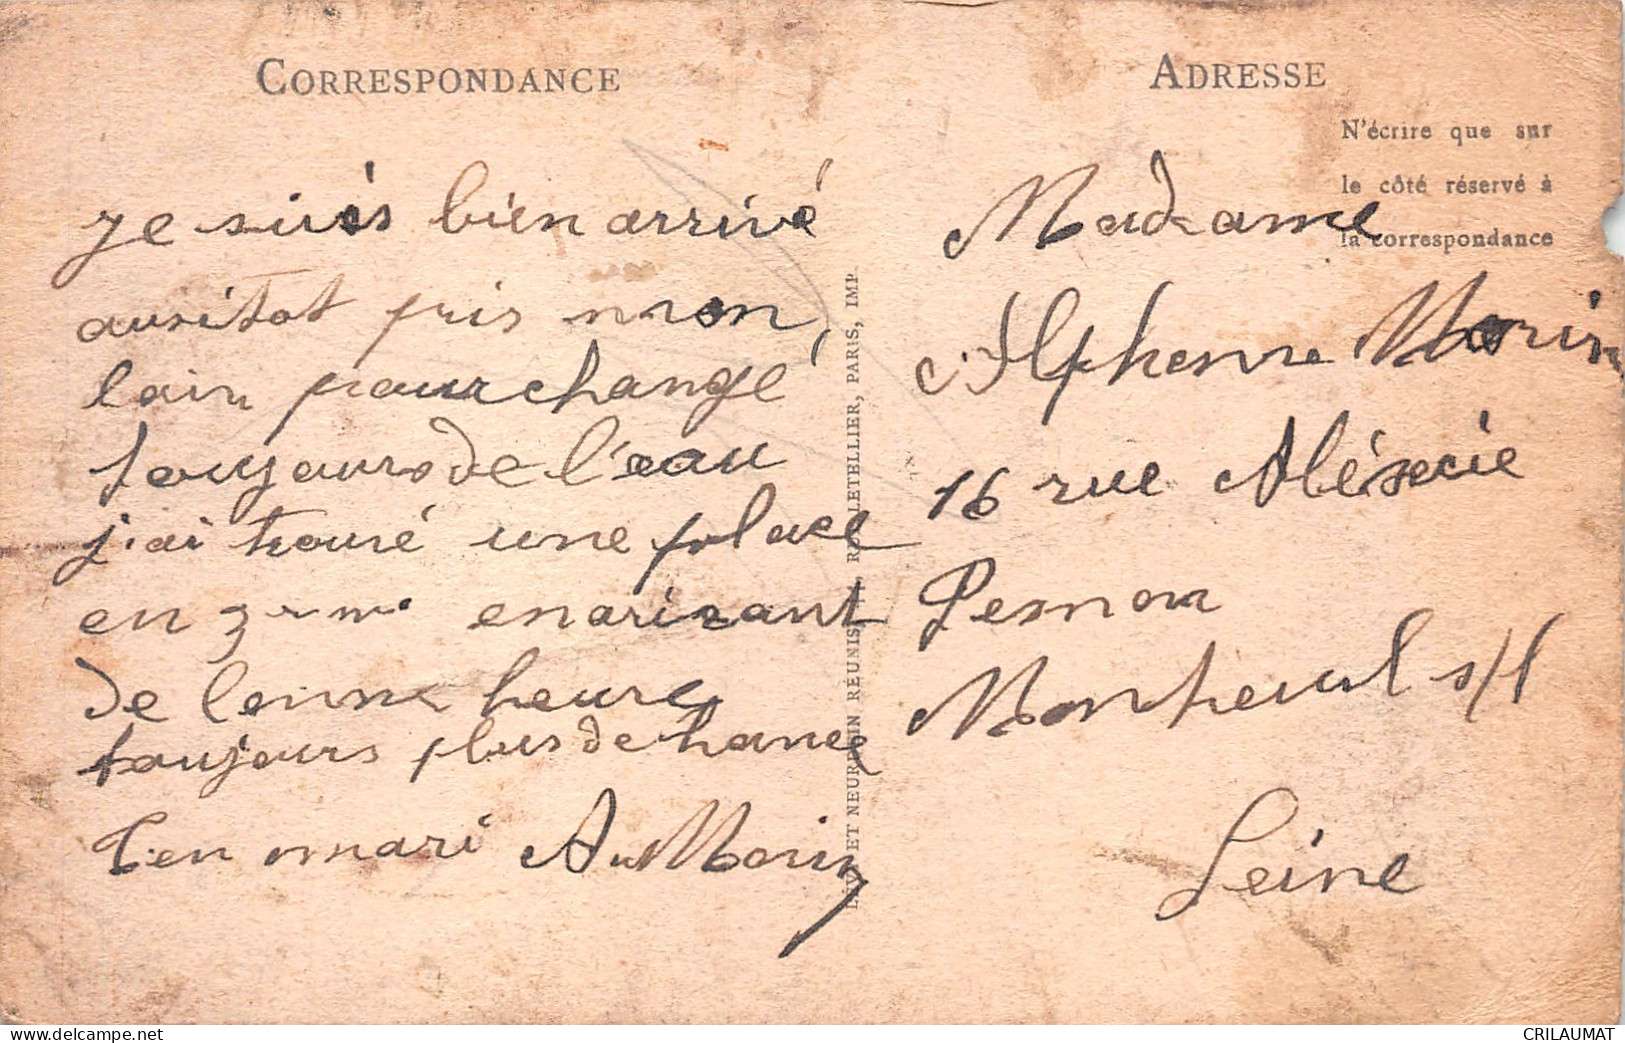 CORRESPONDANCE
je suis bien arrivé
ausitot pris mon
lain pour changé
toujours de l'eau
j'ai trouvé une place
en 3 enarivant
de bonne heure
toujours plus de hance
Ton mari A Morin
LEVY ET NEURDEIN RÉUNIS, LETELLIER, PARIS, IMP.
ADRESSE
N'écrire que sur
le côté réservé à
la correspondance
Madame
Alphonse Morin
16 rue Alésecie
Pesnon
Montreuil s/S
Seine
www.delcampe.net
CRILAUMAT